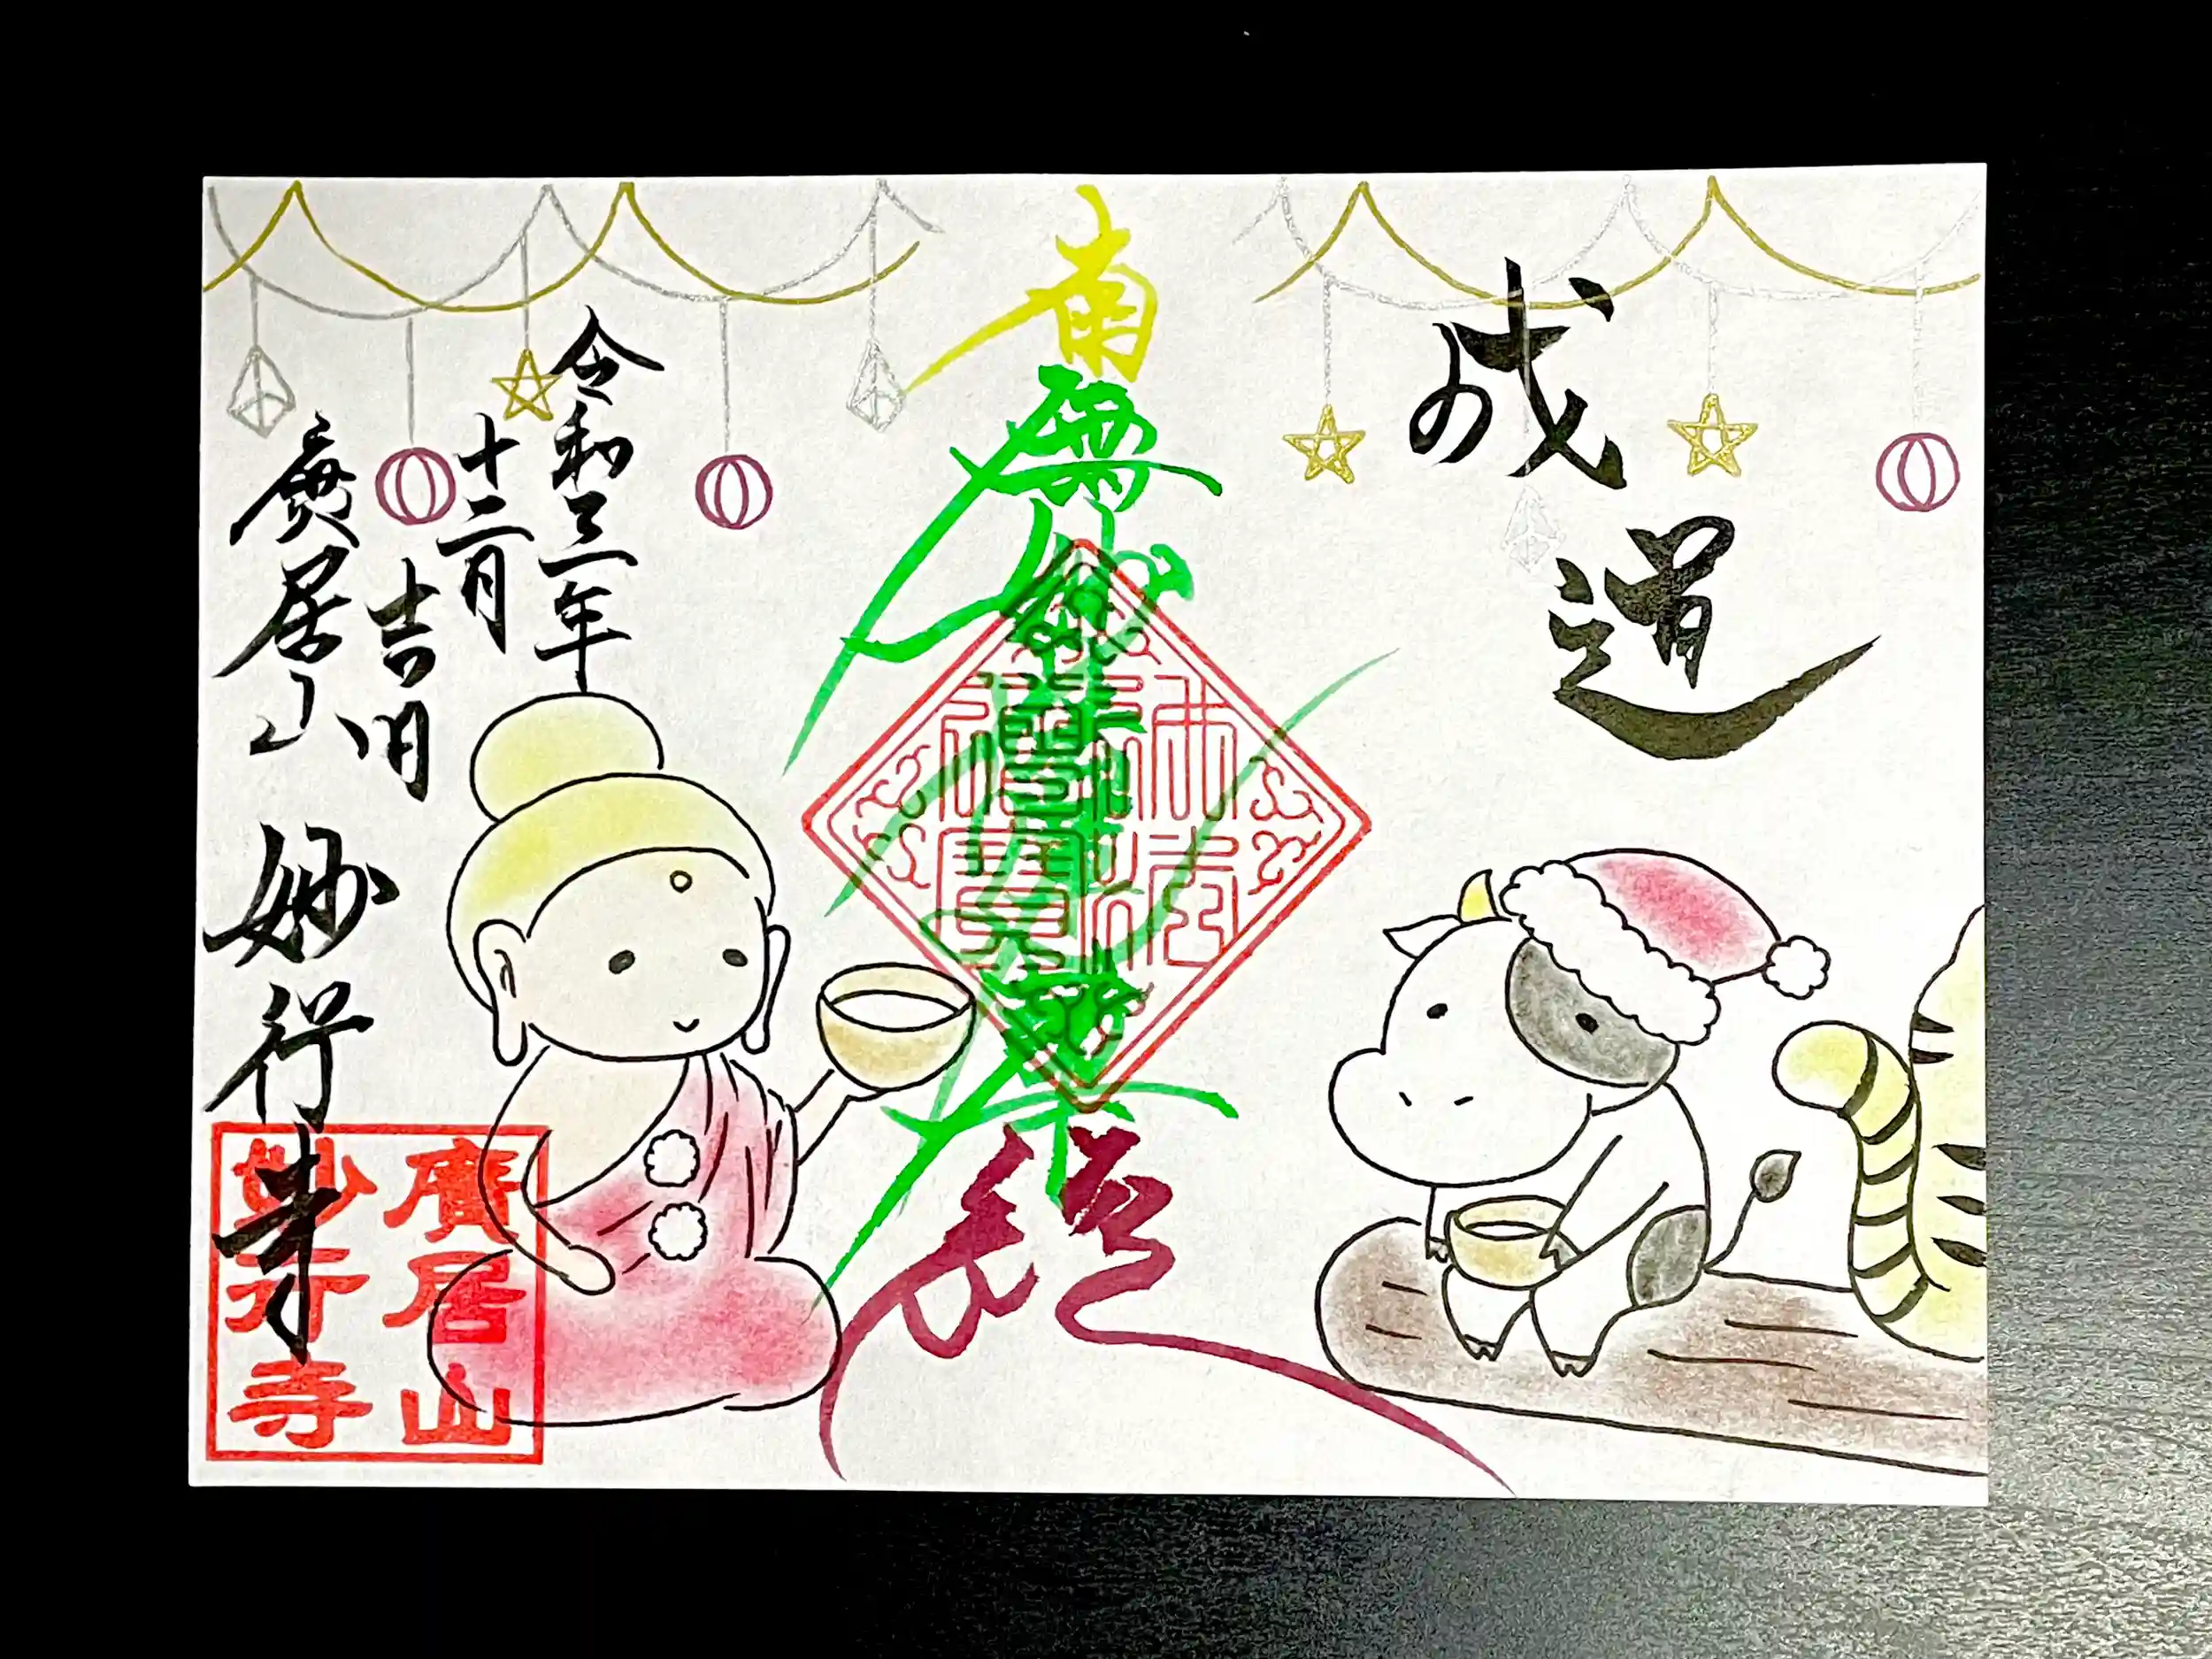 成道
南無妙法蓮華経
佛法
僧寶
令和三年
十二月
吉日
廣居山
妙行寺
廣居山
妙行寺